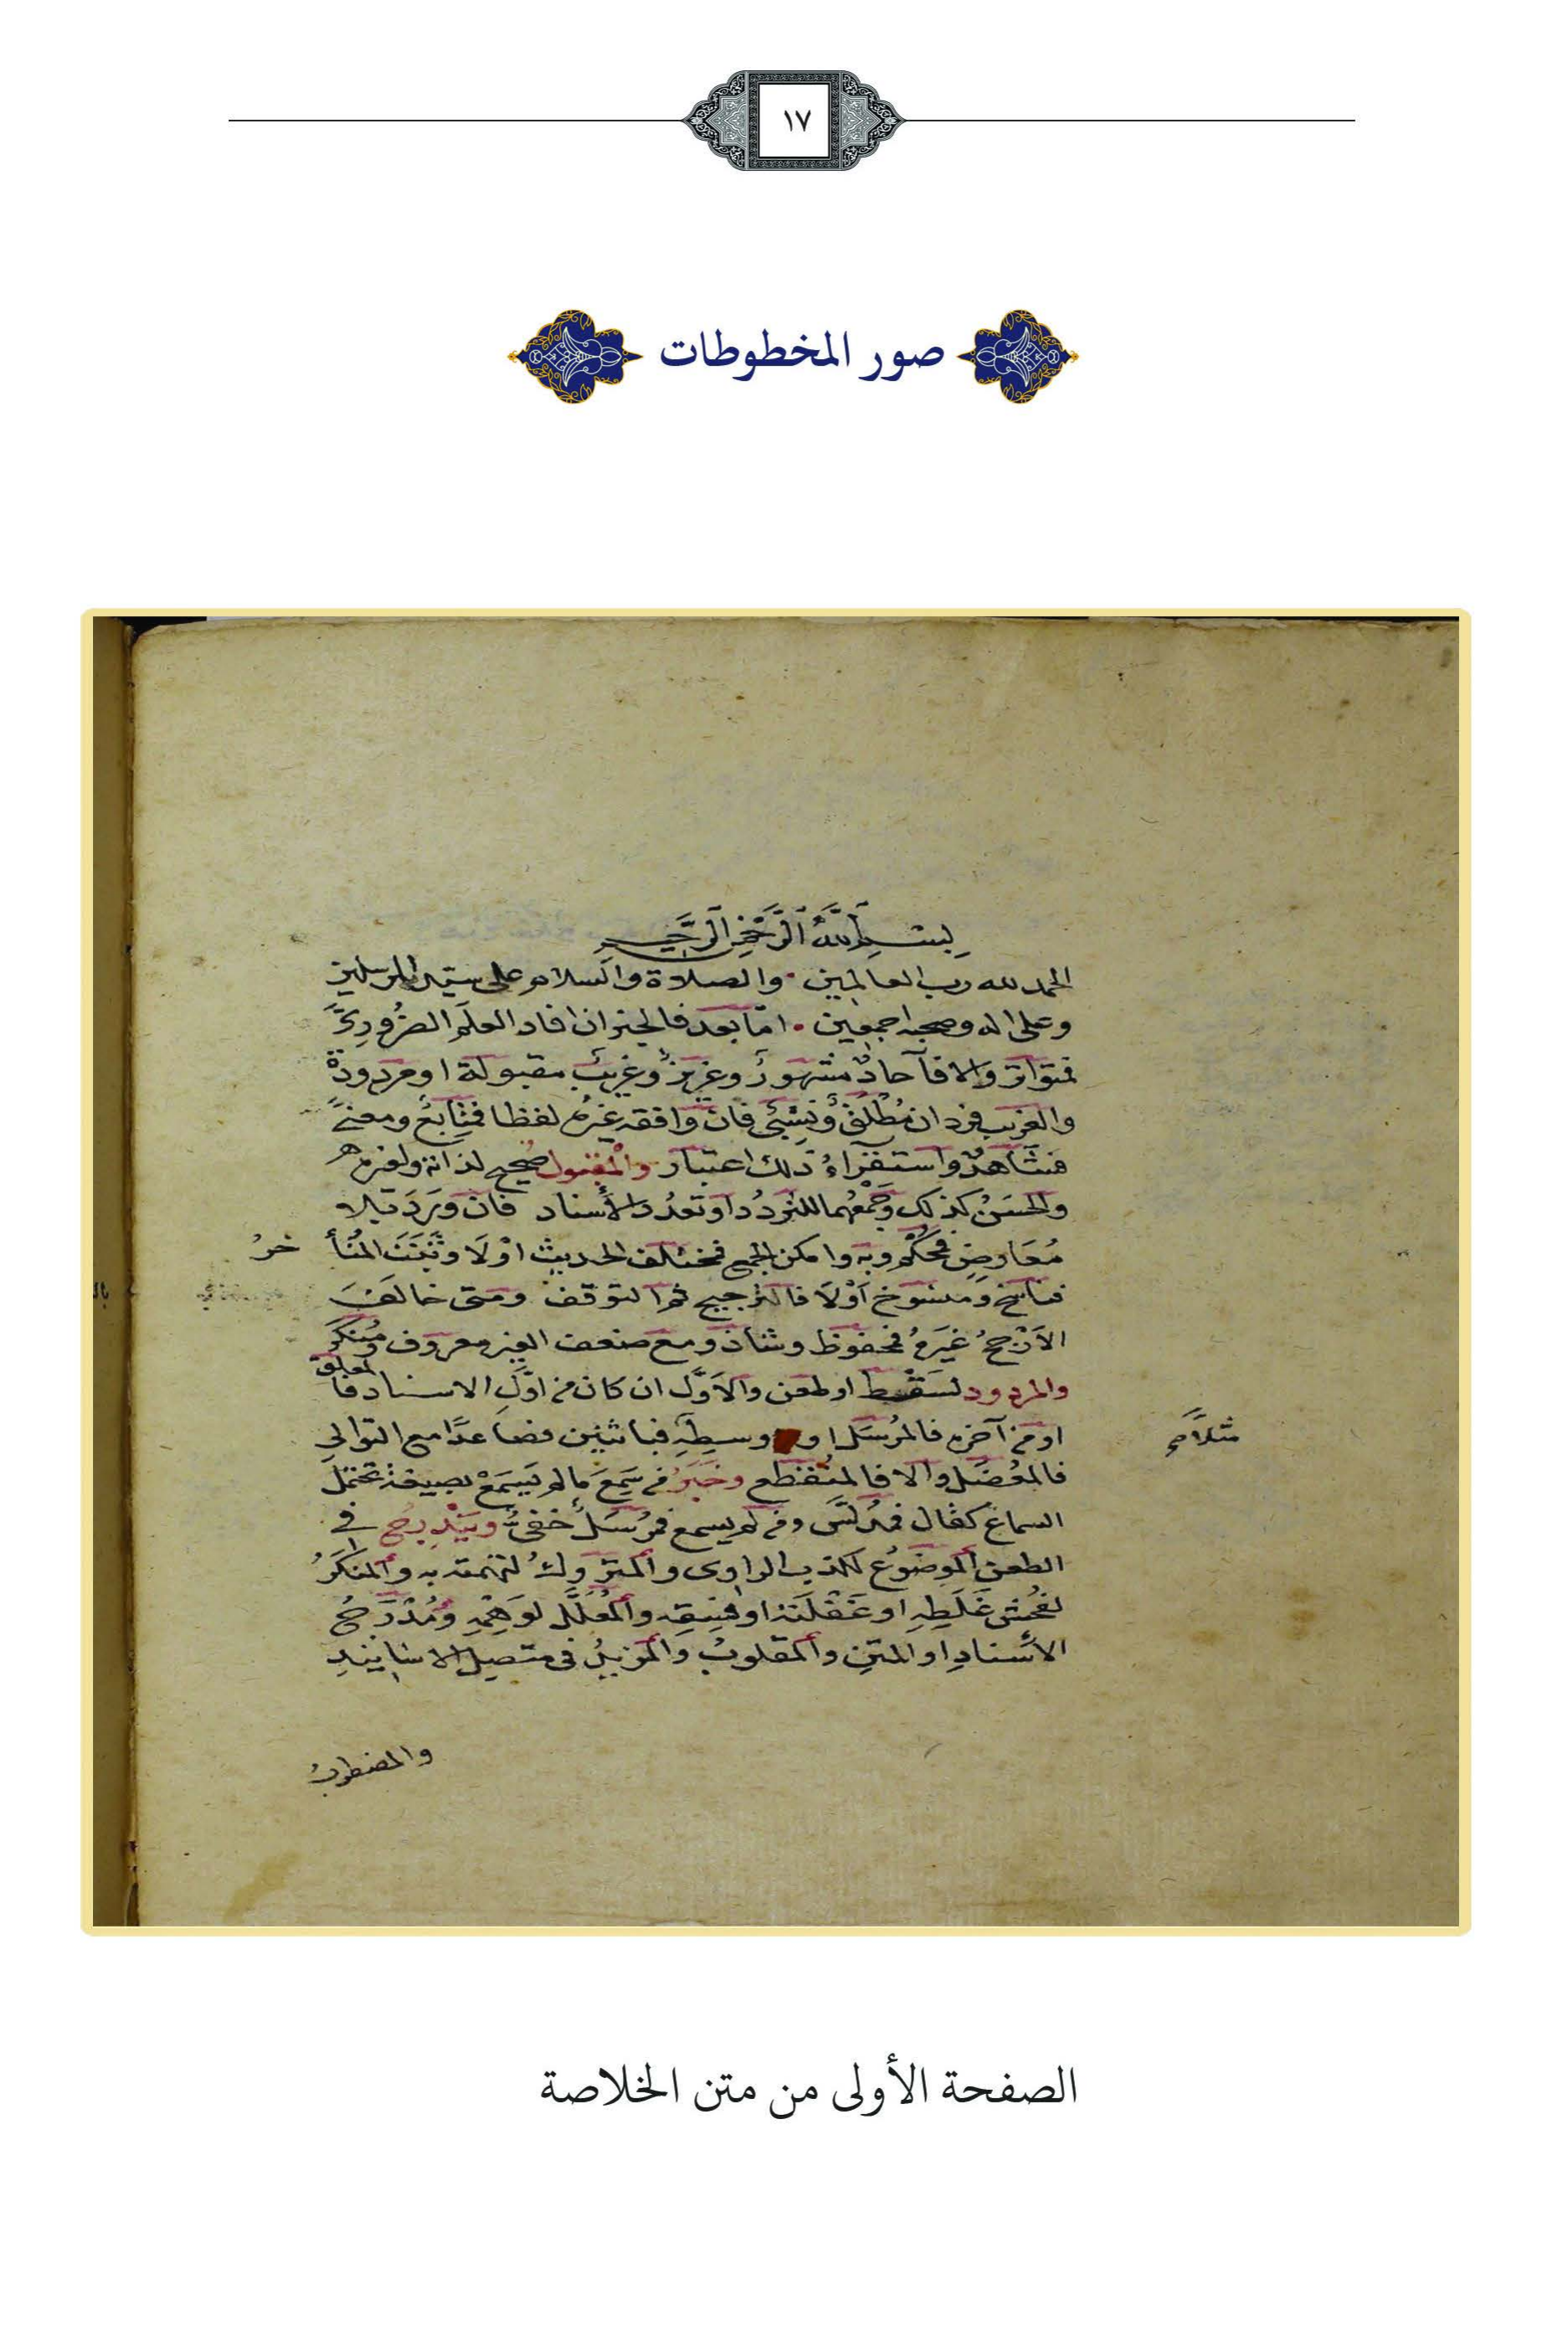 ١٧
صور المخطوطات
بِسْمِ اللَّهِ الرَّحْمٰنِ الرَّحِيمِ
الحمد لله رب العالمين والصلاة والسلام على سيد المرسلين
وعلى اله وصحبه اجمعين امّا بعد فالخبر ان افاد العلمَ الضرُوريَّ
فمتواتر والا فآحادٌ مشهورٌ وعزيزٌ وغريبٌ مقبولة او مردودة
والغريب فرد ان مُطْلَقٌ ونِسْبيٌّ فان وافقه غيرُه لفظا فمتَابعٌ ومعنًى
فشاهدٌ واستقراءُ ذلك اعتبار والمقبول صحيح لذاته ولغيره
والحسَنُ كذلك وجَمْعُهما للتردُد او تعدُد الأسناد فان وَرَدَ بلا
مُعَارِضٍ فمحكَمٌ وبه وامكن الجمع فمختلف الحديث اوْلَا وثبَتَ المتأ خرُ
فناسخ ومنسوخ اَوْلَا فالترجيح ثم التوقف ومتى خالفَ
الاَرْجحُ غيرَهُ فمحفوظ وشاذ ومع ضعف الغير معروف ومُنكَرٌ
والمردود لسَقْطٍ او طعن والاَوّل ان كان من اوّلِ الاسناد فالمعلق
او من آخره فالمُرسَل او وسطِهِ فباثنين فصاعدًا مع التوالي
فالمعْضَل والا فالمنْقَطع وخبَرُ من سَمِعَ ما لم يَسمَعْ بصيغة تحتمل
السماعَ كقال فمدلَّس ومن لم يسمع فمُرسَلٌ خفيٌّ ويَنْدرِجُ في
الطعن الموضوُع لكذب الراوى والمتروكُ لتهمته به والمنكَرُ
لفُحش غَلَطِهِ او غَفْلَته او فِسقِه والمُعَلَّل لوَهْمِهِ ومُدْرَجُ
الاَسنادِ او المتن والمقلوبُ والمزيدُ فى متصِل الاسانيد
والمضطربُ
الصفحة الأولى من متن الخلاصة